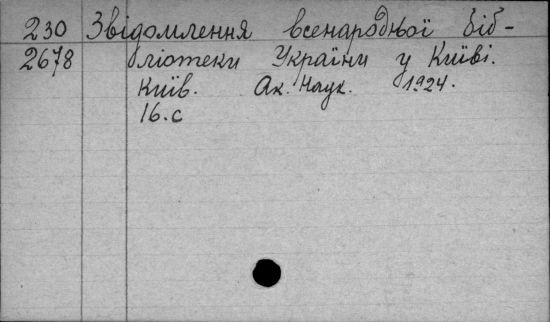 230 Звідомлення всенародньої біб-
2678 бліотеки України у Київі.
Київ. Ак. Наук. 1924.
16.с